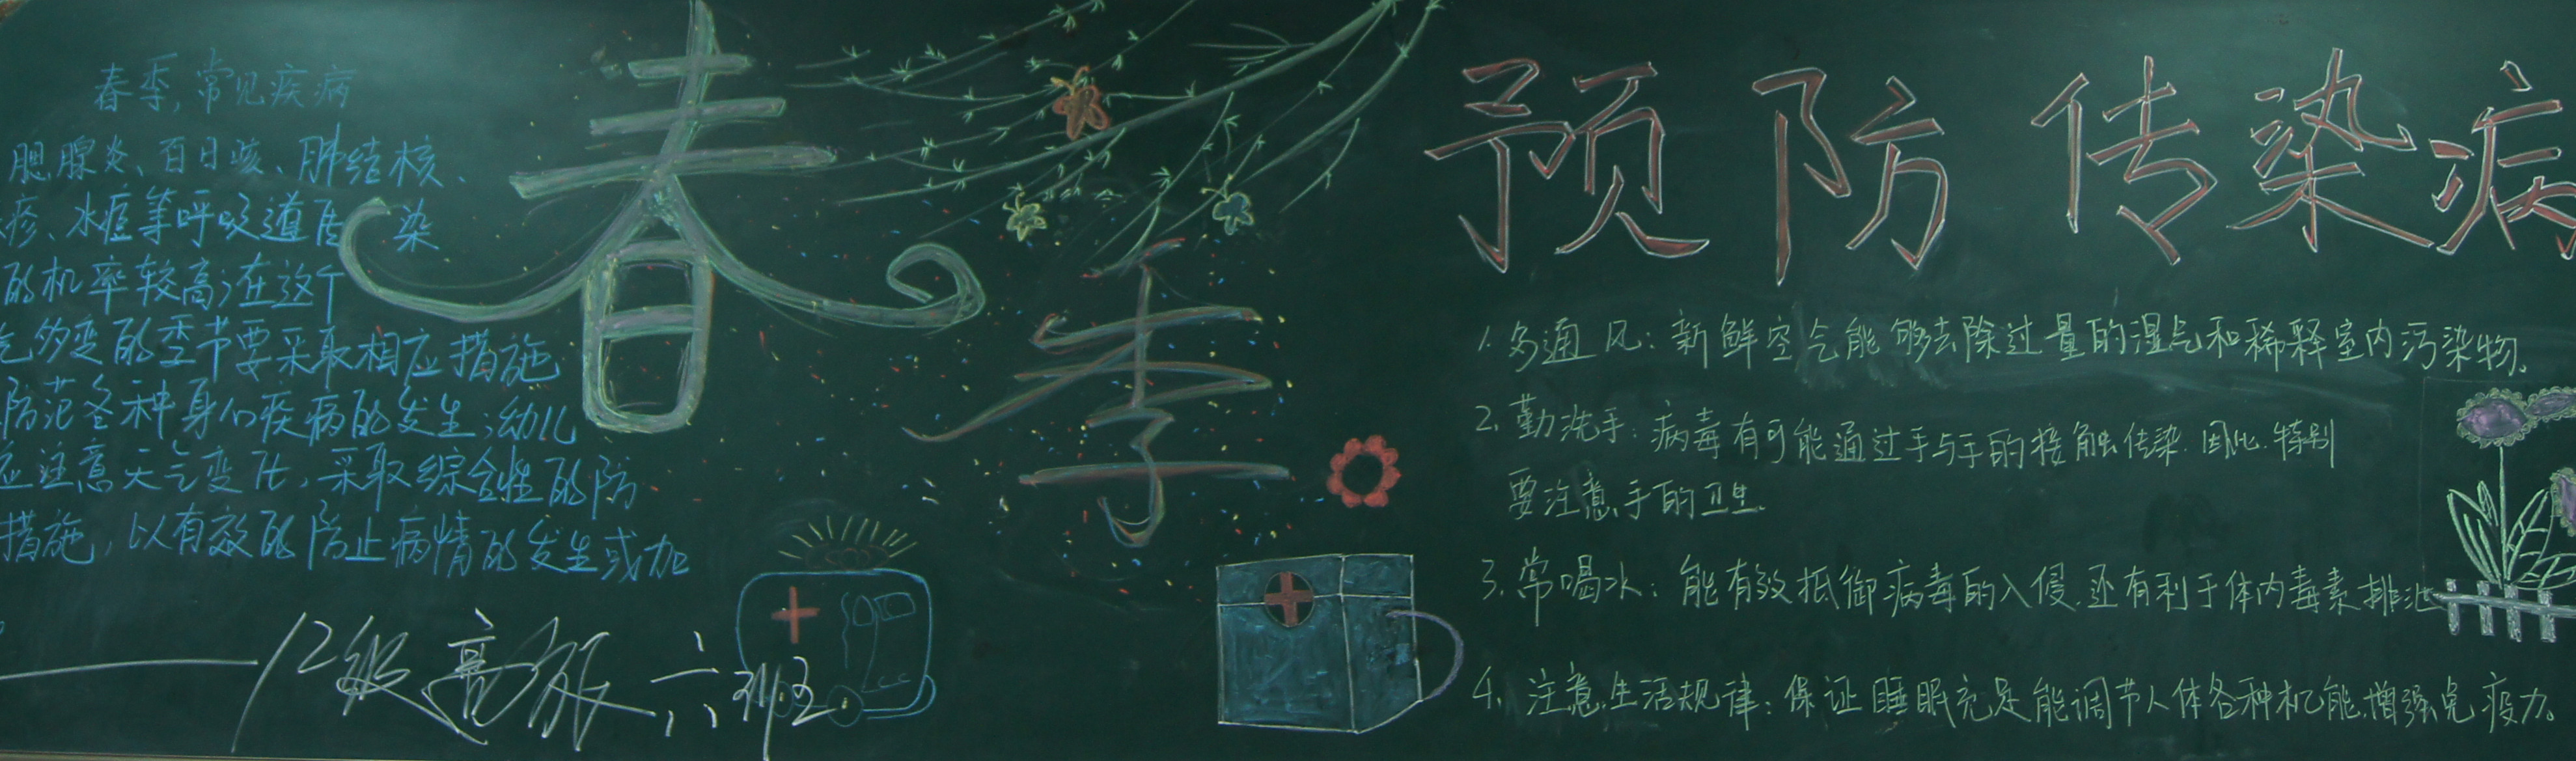 春季,常见疾病
腮腺炎、百日咳、肺结核、
疹、水痘等呼吸道传染
的机率较高;在这个
气多变的季节要采取相应措施
防范各种身们疾病的发生;幼儿
应注意天气变化,采取综合性的防
措施,以有效的防止病情的发生或加
——12级高放六班
春季
预防传染病
1.多通风:新鲜空气能够去除过量的湿气和稀释室内污染物。
2.勤洗手:病毒有可能通过手与手的接触传染.因此.特别
要注意手的卫生.
3.常喝水:能有效抵御病毒的入侵.还有利于体内毒素排泄
4.注意生活规律:保证睡眠充足能调节人体各种机能.增强免疫力。